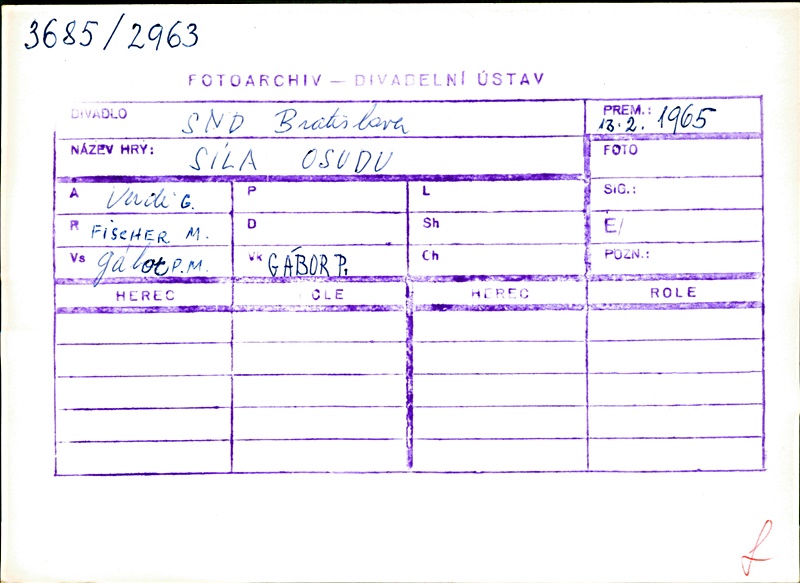 3685/2963
FOTOARCHIV — DIVADELNÍ ÚSTAV
DIVADLO SND Bratislava PREM.: 13.2. 1965
NÁZEV HRY: SÍLA OSUDU FOTO
A Verdi G. P L SIG.:
R FISCHER M. D Sh E/
Vs Gábor P.M. Vk GÁBOR P. Ch POZN.:
HEREC ROLE HEREC ROLE